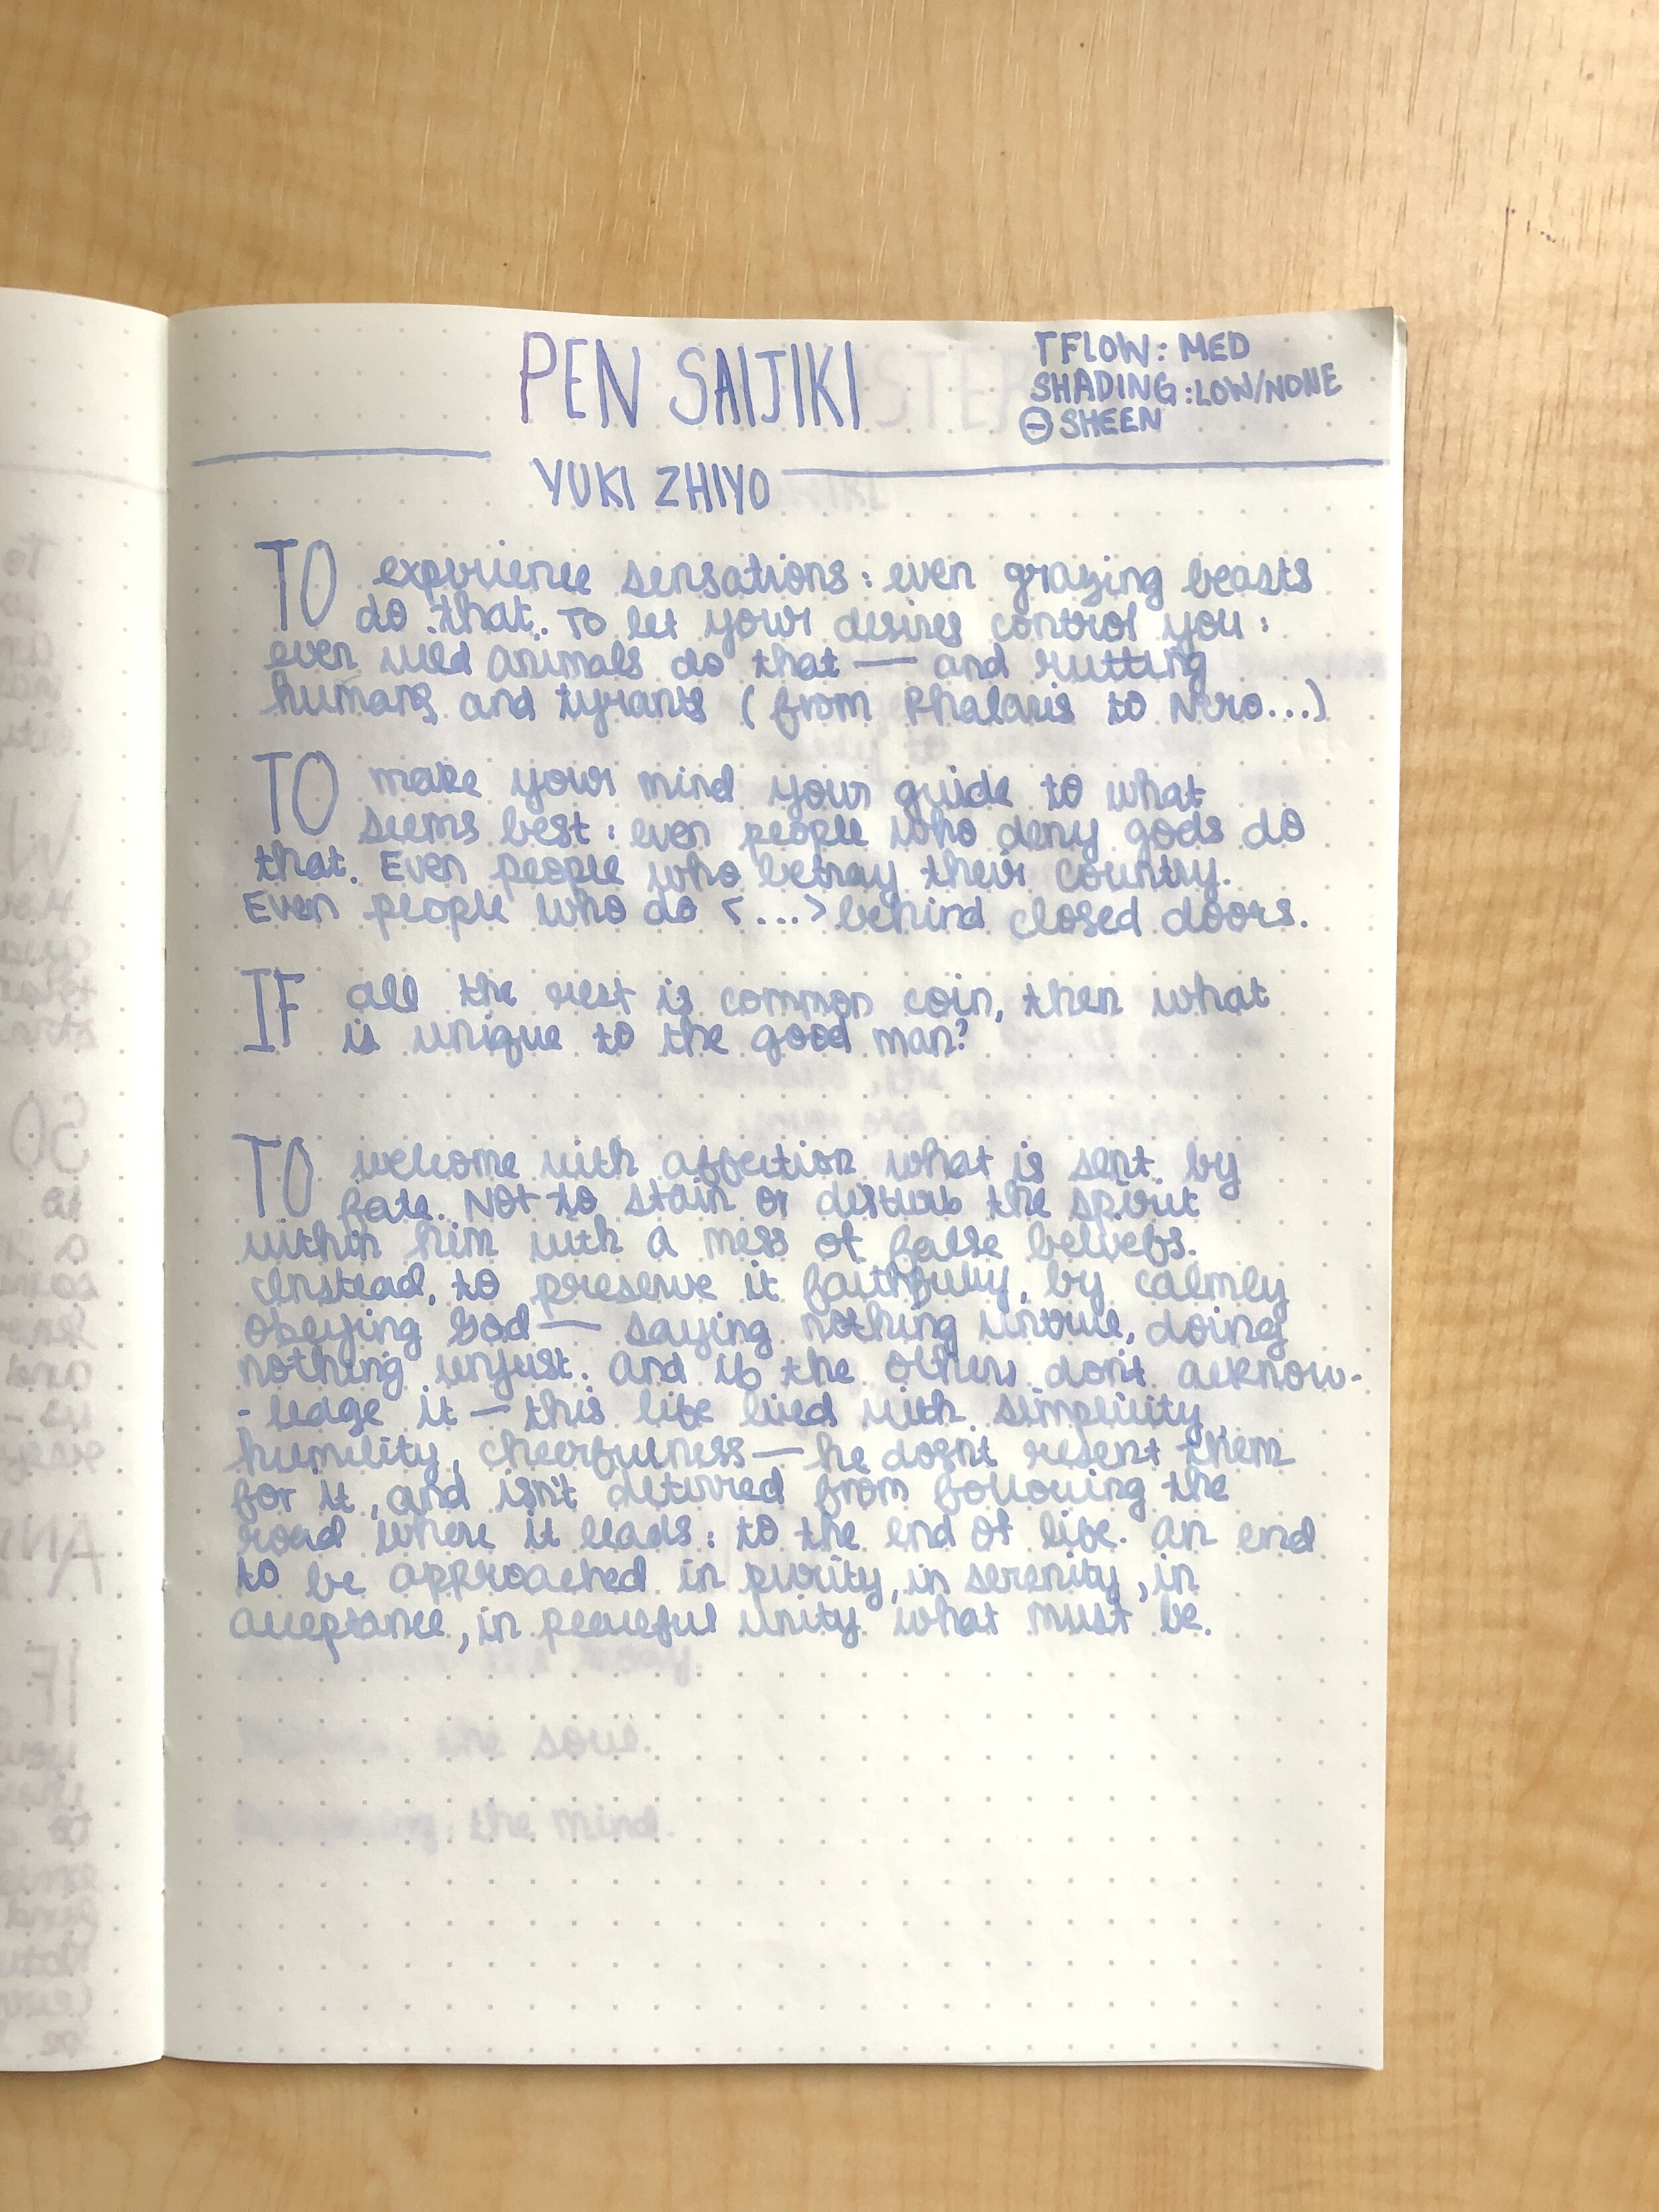 PEN SAIJIKI
FLOW: MED
SHADING: LOW/NONE
⊖ SHEEN
YUKI ZHIYO
TO experience sensations: even grazing beasts
do that. To let your desires control you:
even wild animals do that — and rutting
humans and tyrants (from Phalaris to Nero...)
TO make your mind your guide to what
seems best: even people who deny gods do
that. Even people who betray their country.
Even people who do <...> behind closed doors.
IF all the rest is common coin, then what
is unique to the good man?
TO welcome with affection what is sent by
fate. Not to stain or disturb the spirit
within him with a mess of false beliefs.
Instead, to preserve it faithfully, by calmly
obeying God — saying nothing untrue, doing
nothing unjust. And if the others don't acknow-
-ledge it — this life lived with simplicity,
humility, cheerfulness — he dosn't resent them
for it, and isn't deterred from following the
road where it leads: to the end of life. An end
to be approached in purity, in serenity, in
acceptance, in peaceful unity what must be.
the soul.
the mind.